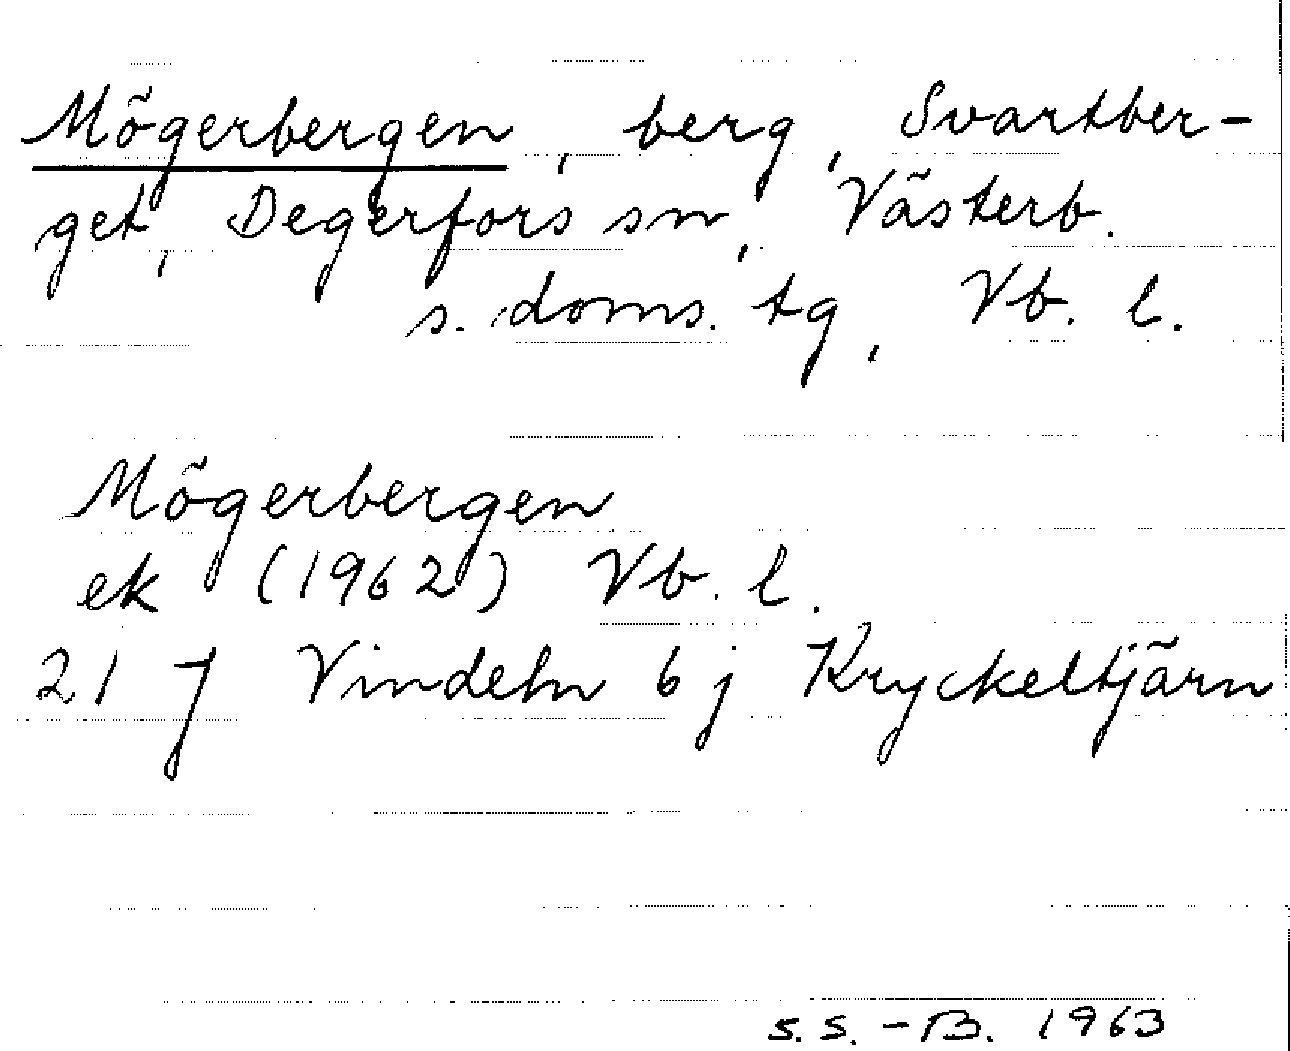 Mögerbergen, berg, Svartber-
get, Degerfors sn, Västerb.
s. doms. tg, Vb. l.
Mögerbergen
ek (1962) Vb. l.
21 J Vindeln 6 j Kryckeltjärn
S.S.-B. 1963